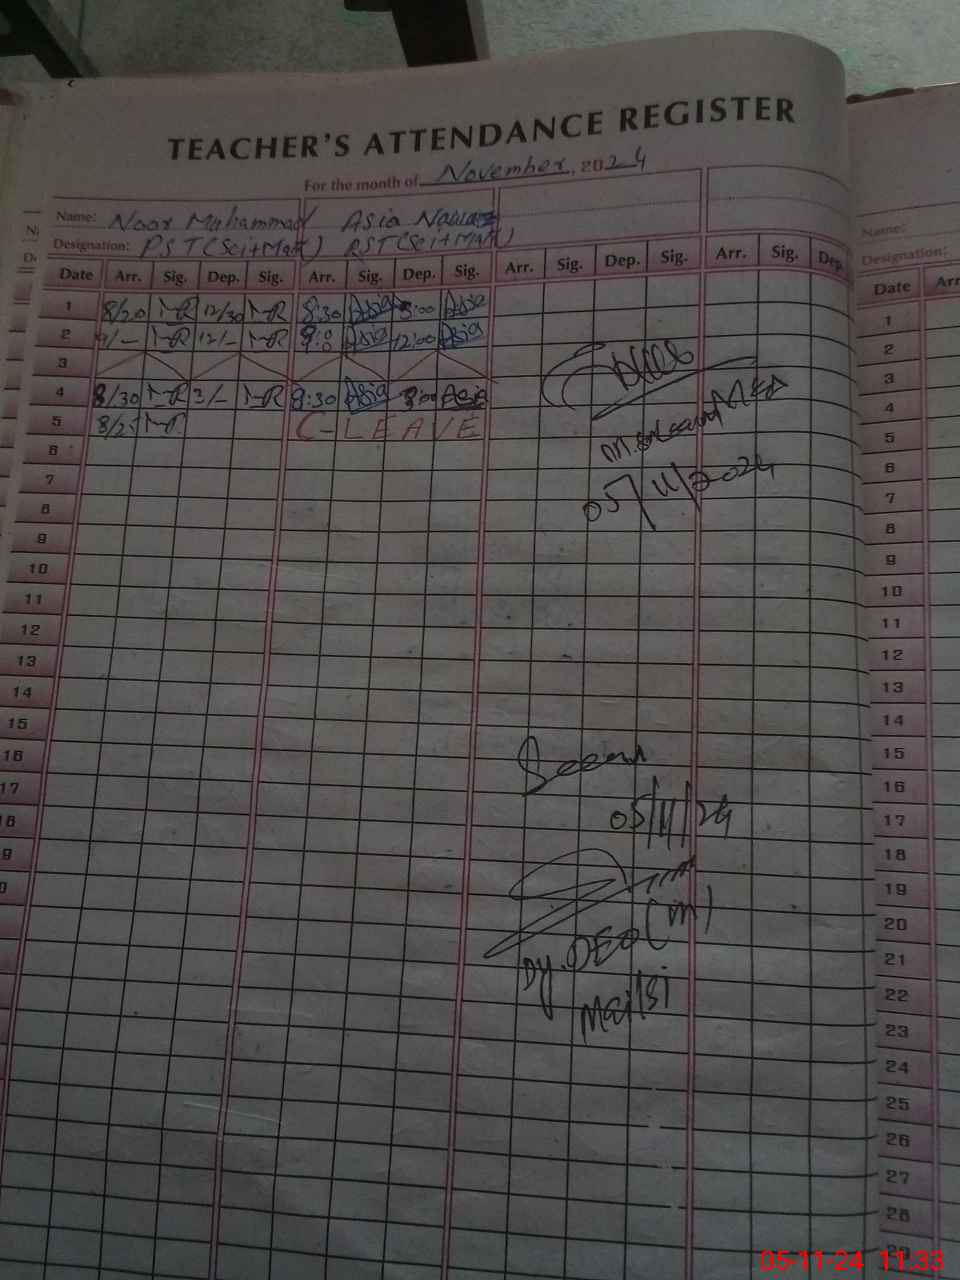 TEACHER'S ATTENDANCE REGISTER
For the month of November, 2024
Name: Noor Muhammad Asia Nawaz
Designation: PST (Sci+Math) PST (Sci+Math)
Date Arr. Sig. Dep. Sig. Arr. Sig. Dep. Sig. Arr. Sig. Dep. Sig. Arr. Sig. Dep.
1 8/20 12/30 8:30 Asia Asia
2 9/- 12/- Asia 12:00 Asia
3
4 8/30 3/- 8:30 Asia Asia
5 8/25 C-LEAVE
6
7
8
9
10
11
12
13
14
15
16
17
05/11/2024
Seen
05/11/24
Dy. DEO (m)
Mailsi
Name:
Designation:
Date Arr
1
2
3
4
5
6
7
8
9
10
11
12
13
14
15
16
17
18
19
20
21
22
23
24
25
26
27
28
29
05-11-24 11:33